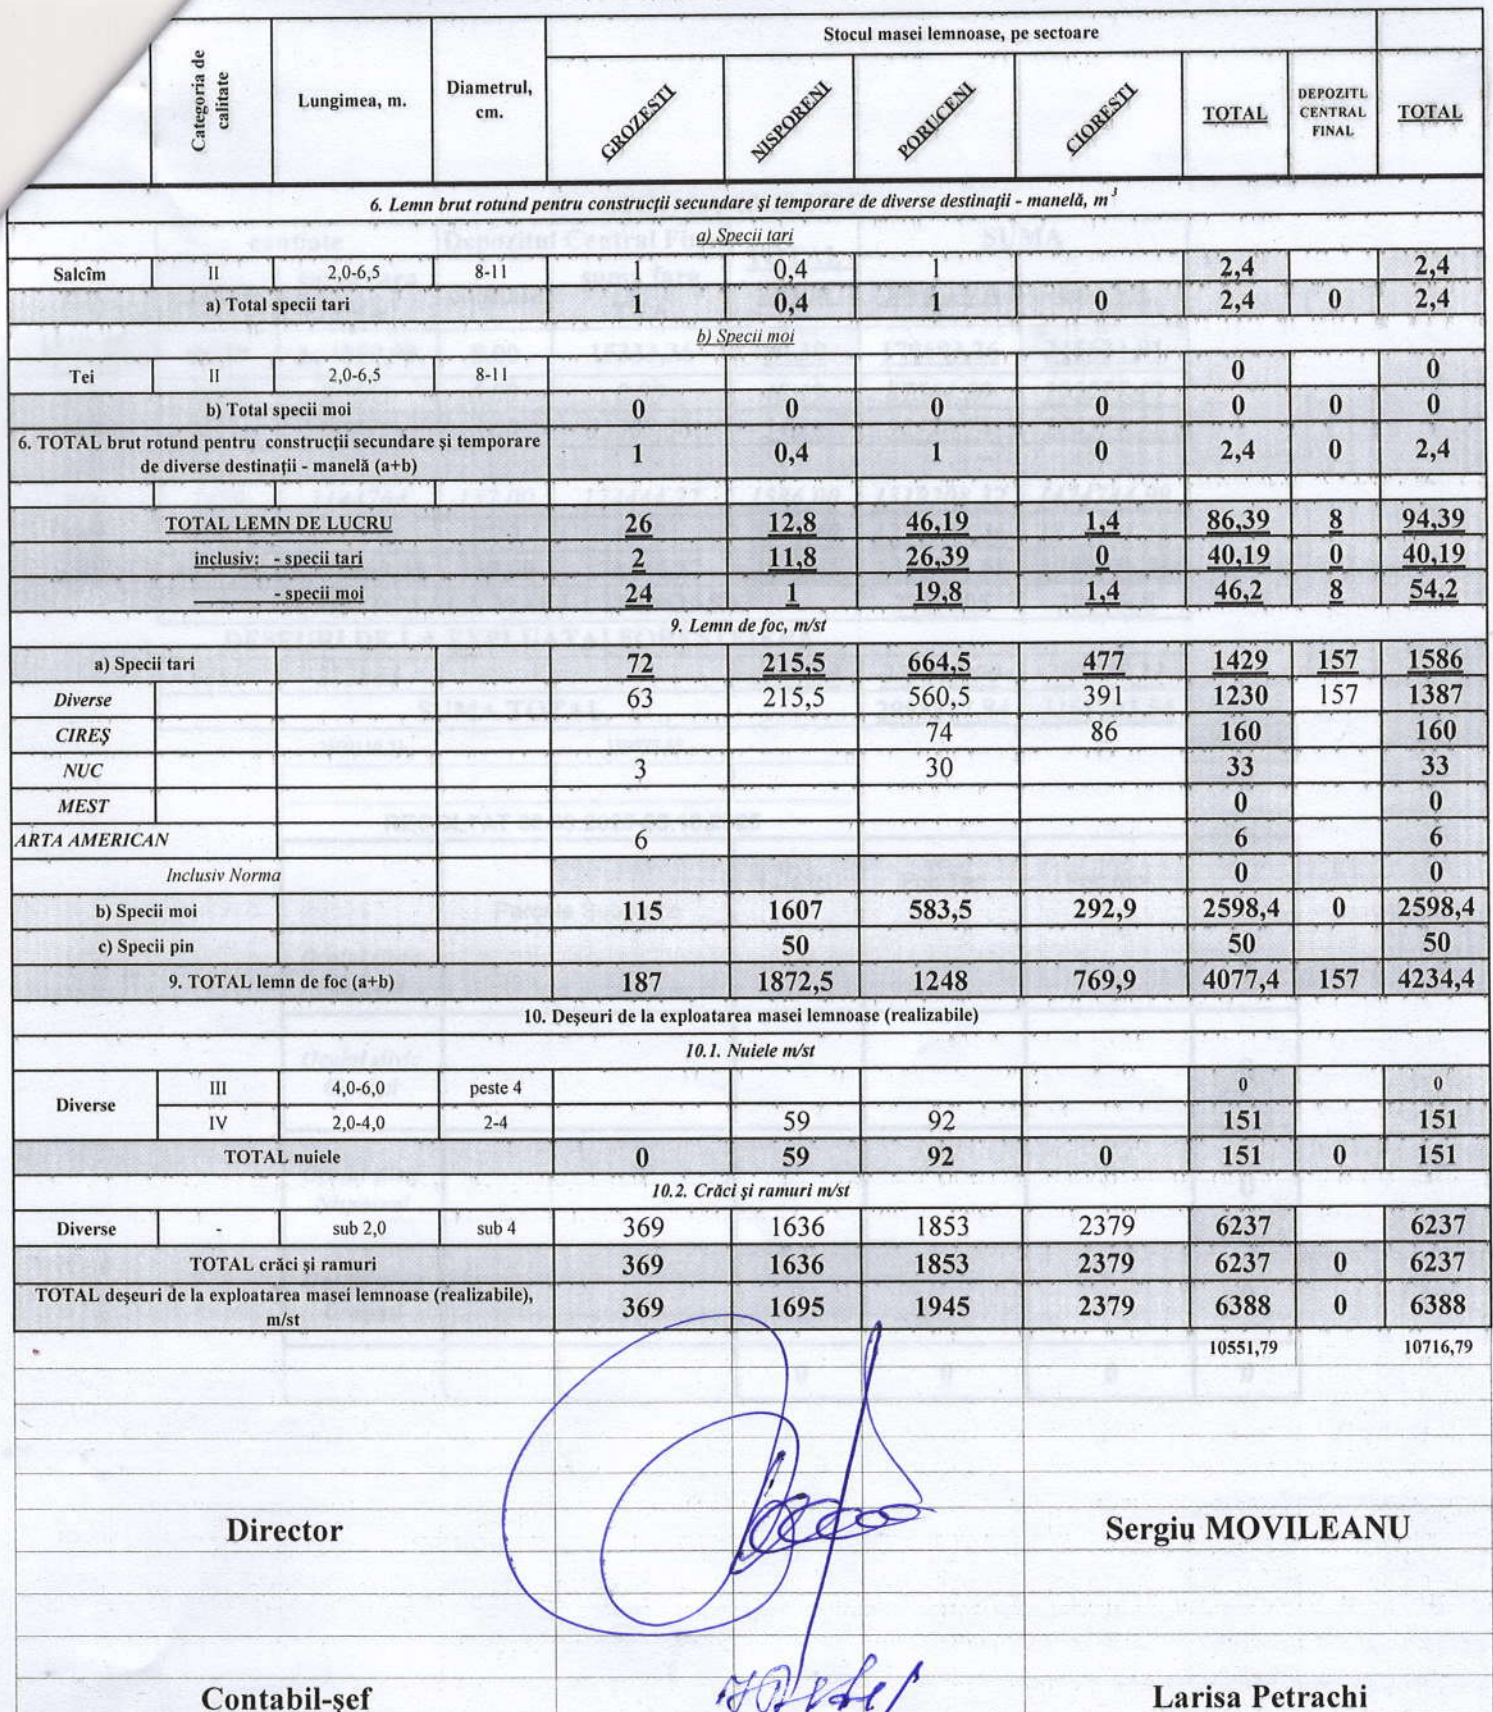 Stocul masei lemnoase, pe sectoare
Categoria de calitate Lungimea, m. Diametrul, cm. GROZESTI NISPORENI PORUCENI CIORESTI TOTAL DEPOZITL CENTRAL FINAL TOTAL
6. Lemn brut rotund pentru construcții secundare și temporare de diverse destinații - manelă, m³
a) Specii tari
Salcîm II 2,0-6,5 8-11 1 0,4 1 2,4 2,4
a) Total specii tari 1 0,4 1 0 2,4 0 2,4
b) Specii moi
Tei II 2,0-6,5 8-11 0 0
b) Total specii moi 0 0 0 0 0 0 0
6. TOTAL brut rotund pentru construcții secundare și temporare
de diverse destinații - manelă (a+b) 1 0,4 1 0 2,4 0 2,4
TOTAL LEMN DE LUCRU 26 12,8 46,19 1,4 86,39 8 94,39
inclusiv: - specii tari 2 11,8 26,39 0 40,19 0 40,19
- specii moi 24 1 19,8 1,4 46,2 8 54,2
9. Lemn de foc, m/st
a) Specii tari 72 215,5 664,5 477 1429 157 1586
Diverse 63 215,5 560,5 391 1230 157 1387
CIREȘ 74 86 160 160
NUC 3 30 33 33
MEST 0 0
ARTA AMERICAN 6 6 6
Inclusiv Norma 0 0
b) Specii moi 115 1607 583,5 292,9 2598,4 0 2598,4
c) Specii pin 50 50 50
9. TOTAL lemn de foc (a+b) 187 1872,5 1248 769,9 4077,4 157 4234,4
10. Deșeuri de la exploatarea masei lemnoase (realizabile)
10.1. Nuiele m/st
Diverse III 4,0-6,0 peste 4 0 0
IV 2,0-4,0 2-4 59 92 151 151
TOTAL nuiele 0 59 92 0 151 0 151
10.2. Crăci și ramuri m/st
Diverse - sub 2,0 sub 4 369 1636 1853 2379 6237 6237
TOTAL crăci și ramuri 369 1636 1853 2379 6237 0 6237
TOTAL deșeuri de la exploatarea masei lemnoase (realizabile),
m/st 369 1695 1945 2379 6388 0 6388
10551,79 10716,79
Director Sergiu MOVILEANU
Contabil-șef Larisa Petrachi